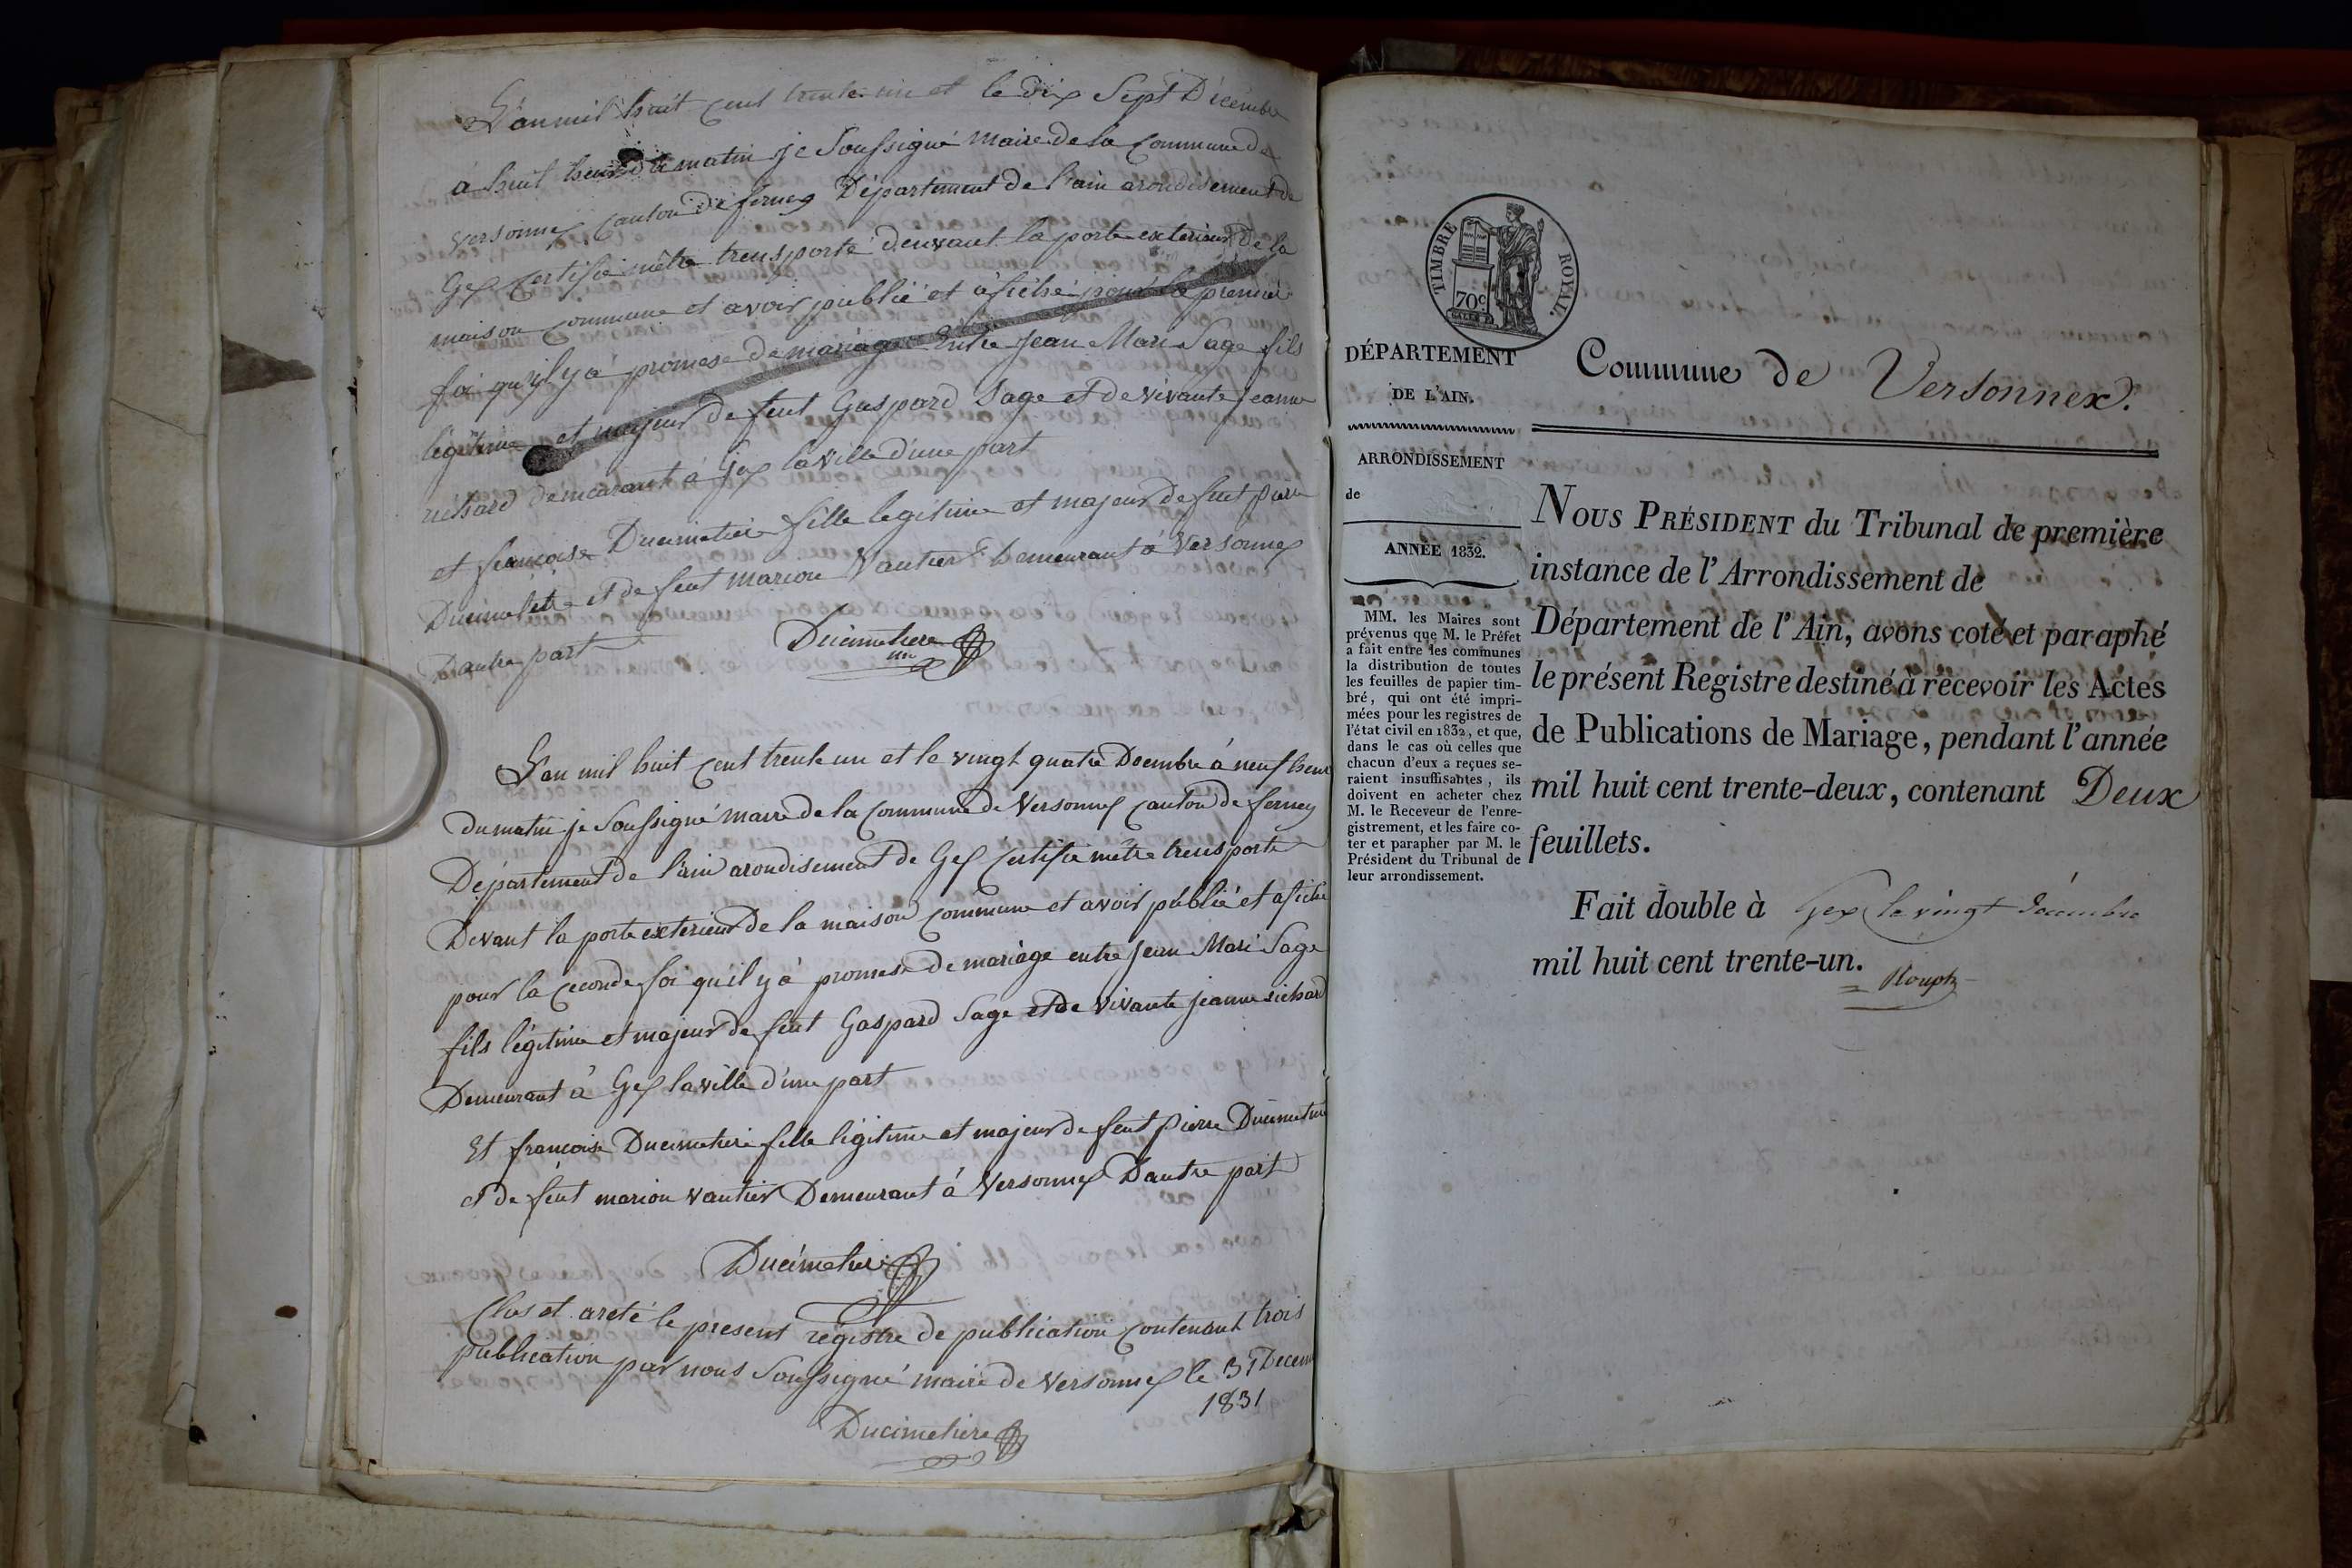 L'an mil huit cent trente un et le dix Sept Décembre
à huit heure du matin je Soussigné Maire de la Commune de
Versonnex Canton de ferney Département de l'ain arondisement de
Gex Certifie mêtre transporté deuvant la porte exterieur de la
maison commune et avoir publié et afiché pour la premier
foi qu'il y à promese de mariage Entre Jean Mari Sage fils
légitime et majeur de feut Gaspard Sage et de vivante Jeanne
richard demeurant à Gex la ville d'une part
et francoise Ducimetiere fille legitime et majeur de feut pierre
Ducimetiere et de feut marion Vautier demeurant à Versonnex
D'autre part
Ducimetiere
L'an mil huit cent trente un et le vingt quatre Decembre à neuf heure
Du matin je Soussigné maire de la Commune de Versonnex canton de ferney
Département de l'ain arondisement de Gex Certifie mêtre transporté
Devant la porte exterieur de la maison commune et avoir publié et afiché
pour la ceconde foi qu'il y à promese de mariage entre Jean Mari Sage
fils légitime et majeur de feut Gaspard Sage et de vivante Jeanne richard
Demeurant à Gex la ville d'une part
Et francoise Ducimetiere fille légitime et majeur de feut pierre Ducimetiere
et de feut marion vautier Demeurant à Versonnex D'autre part
Ducimetiere
Clos et areté le présent régistre de publication contenant trois
publication par nous Soussigné maire de Versonnex le 31 Decem
1831
Ducimetiere
TIMBRE ROYAL.
70c
DÉPARTEMENT
DE L'AIN.
Commune de Versonnex.
ARRONDISSEMENT
de
ANNÉE 1832.
MM. les Maires sont
prévenus que M. le Préfet
a fait entre les communes
la distribution de toutes
les feuilles de papier tim-
bré, qui ont été impri-
mées pour les registres de
l'état civil en 1832, et que,
dans le cas où celles que
chacun d'eux a reçues se-
raient insuffisantes, ils
doivent en acheter chez
M. le Receveur de l'enre-
gistrement, et les faire co-
ter et parapher par M. le
Président du Tribunal de
leur arrondissement.
NOUS PRÉSIDENT du Tribunal de première
instance de l'Arrondissement de
Département de l'Ain, avons coté et paraphé
le présent Registre destiné à recevoir les Actes
de Publications de Mariage, pendant l'année
mil huit cent trente-deux, contenant Deux
feuillets.
Fait double à Gex le vingt décembre
mil huit cent trente-un.